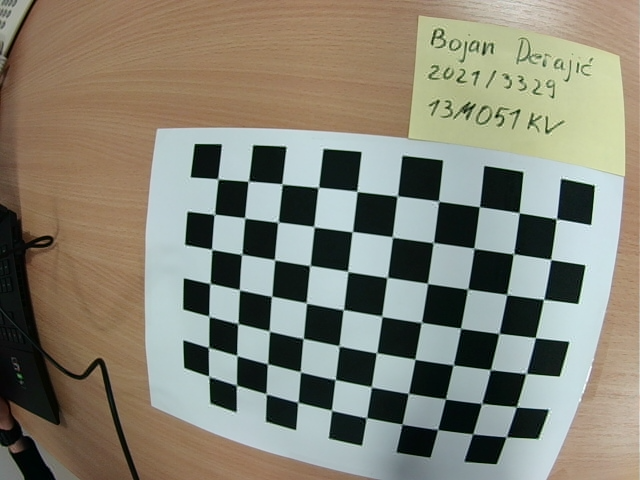 Bojan Derajić
2021/3329
13M051KV